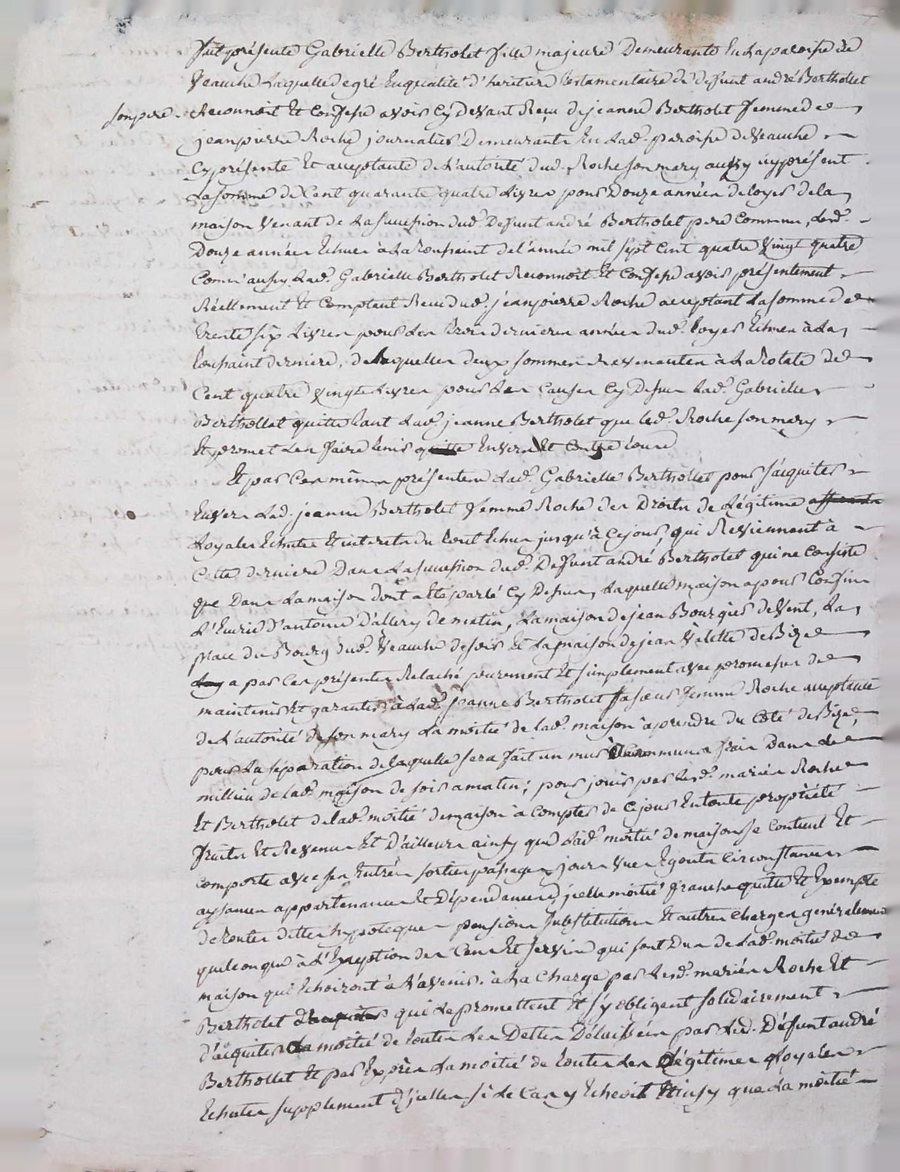 fut présente Gabrielle Bertholet fille majeure Demeurante En la paroisse de
Veauche Laquelle de gré En qualité d'heritiere testamentaire de defunt andré Berthollet
son pere Reconnoit Et Confesse avoir Cy devant Recu de jeanne Bertholet femme de
jean pierre Roche journalier Demeurante En lad. paroisse de Veauche
Cy présente Et acceptante de L'autorité dud. Roche son mary aussy icy présent
La somme de Cent quarante quatre Livres pour Douze années de loyer de la
maison Venant de La succession dud. Defunt andré Bertholet pere Commun, Lesd.
Douze années Echues a La toussaint de l'année mil sept Cent quatre Vingt quatre
Come aussy Lad. Gabrielle Bertholet Reconnoit Et Confesse avoir présentement
Réellement Et Comptant Recu dud. jean pierre Roche acceptant La somme de
trente six Livres pour Les trois dernieres années dud. loyer Echues à La
toussaint derniere, desquelles deux sommes Revenantes à La totale de
Cent quatre Vingt Livres pour Les Causes Cy Dessus Lad. Gabrielle
Berthollet quitte tant Lad. jeanne Bertholet que led. Roche son mary
Et promet Les faire tenir quitte Envers Et Contre tous
Et par Ces mêmes présentes Lad. Gabrielle Berthollet pour s'acquiter
Envers Lad. jeanne Bertholet femme Roche des Droits de Légitime
Loyales Echutes Et interets du tout Echus jusqu'à Ce jour, qui Reviennent à
Cette derniere Dans La succession dud. Defunt andré Bertholet qui ne Consiste
que Dans La maison dont a Eté parlé Cy Dessus, Laquelle maison a pour Confins
L'Ecurie d'antoine d'allery de matin, La maison de jean Bourgier de Vent, La
place du Bourg dud. Veauche de soir Et La maison de jean Vilette de Bize
a par Ces présentes Relaché purement Et simplement avec promesse de
maintenir Et garantir à Lad. jeanne Bertholet sa sœur femme Roche acceptante
de L'autorité de son mary La moitié de lad. maison à prendre du Coté de Bize,
pour La séparation de laquelle sera fait un mur à Communs frais Dans le
millieu de lad. maison de soir a matin; pour jouir par Lesd. mariés Roche
Et Bertholet de lad. moitié de maison à Compter de Ce jour En toute propriété
fruits Et Revenus Et D'ailleurs ainsy que Lad. moitié de maison se Contient Et
Comporte avec ses Entrées sorties passages jours vues Egouts Circonstances
aysances appartenances Et Dépendances, jcelle moitié franche quitte Et Exempte
de toutes dettes hypoteques pensions substitutions Et autres Charges généralement
quelconques à L'Exception des Cens Et servis qui sont Dus de Lad. moitié de
maison qui Echoiront à L'avenir à La Charge par Lesd. mariés Roche Et
Bertholet qui Le promettent Et s'y obligent solidairement
d'acquiter La moitié de toutes Les Dettes Délaissées par Led. Défunt andré
Berthollet Et par Exprès La moitié de toutes Les Légitimes Loyales
Echutes supplement d'jcelles si le Cas y Echeoit Et ainsy que La moitié